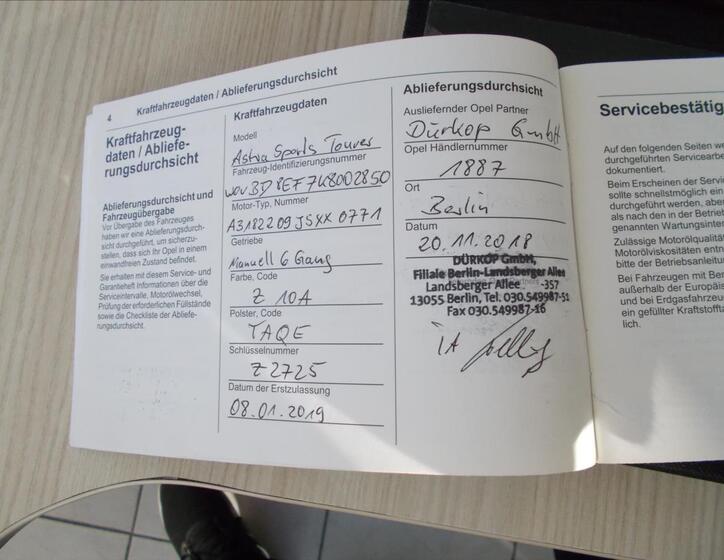 4 Kraftfahrzeugdaten / Ablieferungsdurchsicht
Kraftfahrzeug-
daten / Abliefe-
rungsdurchsicht
Ablieferungsdurchsicht und
Fahrzeugübergabe
Vor Übergabe des Fahrzeuges
haben wir eine Ablieferungsdurch-
sicht durchgeführt, um sicherzu-
stellen, dass sich Ihr Opel in einem
einwandfreien Zustand befindet.
Sie erhalten mit diesem Service- und
Garantieheft Informationen über die
Serviceintervalle, Motorölwechsel,
Prüfung der erforderlichen Füllstände
sowie die Checkliste der Abliefe-
rungsdurchsicht.
Kraftfahrzeugdaten
Modell
Astra Sports Tourer
Fahrzeug-Identifizierungsnummer
W0VBD8EF7K8002850
Motor-Typ, Nummer
A3182209JSXX0771
Getriebe
Manuell 6 Gang
Farbe, Code
Z 10A
Polster, Code
TAQE
Schlüsselnummer
Z2725
Datum der Erstzulassung
08.01.2019
Ablieferungsdurchsicht
Ausliefernder Opel Partner
Dürkop GmbH
Opel Händlernummer
1887
Ort
Berlin
Datum
20.11.2018
DÜRKOP GmbH,
Filiale Berlin-Landsberger Allee
Landsberger Allee -357
13055 Berlin, Tel. 030.549987-51
Fax 030.549987-16
iA
Servicebestätig
Auf den folgenden Seiten we
durchgeführten Servicearbe
dokumentiert.
Beim Erscheinen der Servic
sollte schnellstmöglich ein
durchgeführt werden, aber
als nach den in der Betrieb
genannten Wartungsinter
Zulässige Motorölqualität
Motorölviskositäten entn
bitte der Betriebsanleitu
Bei Fahrzeugen mit Ben
außerhalb der Europäis
und bei Erdgasfahrzeu
ein gefüllter Kraftstoffta
lich.